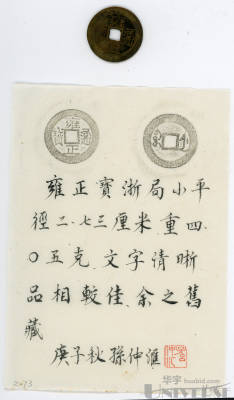 雍正通寶
雍正寶浙局小平
徑二.七三厘米重四.
〇五克.文字清晰
品相較佳.余之舊
藏
庚子秋孫仲滙
2473
华宇 huabid.com
UNIVERSE